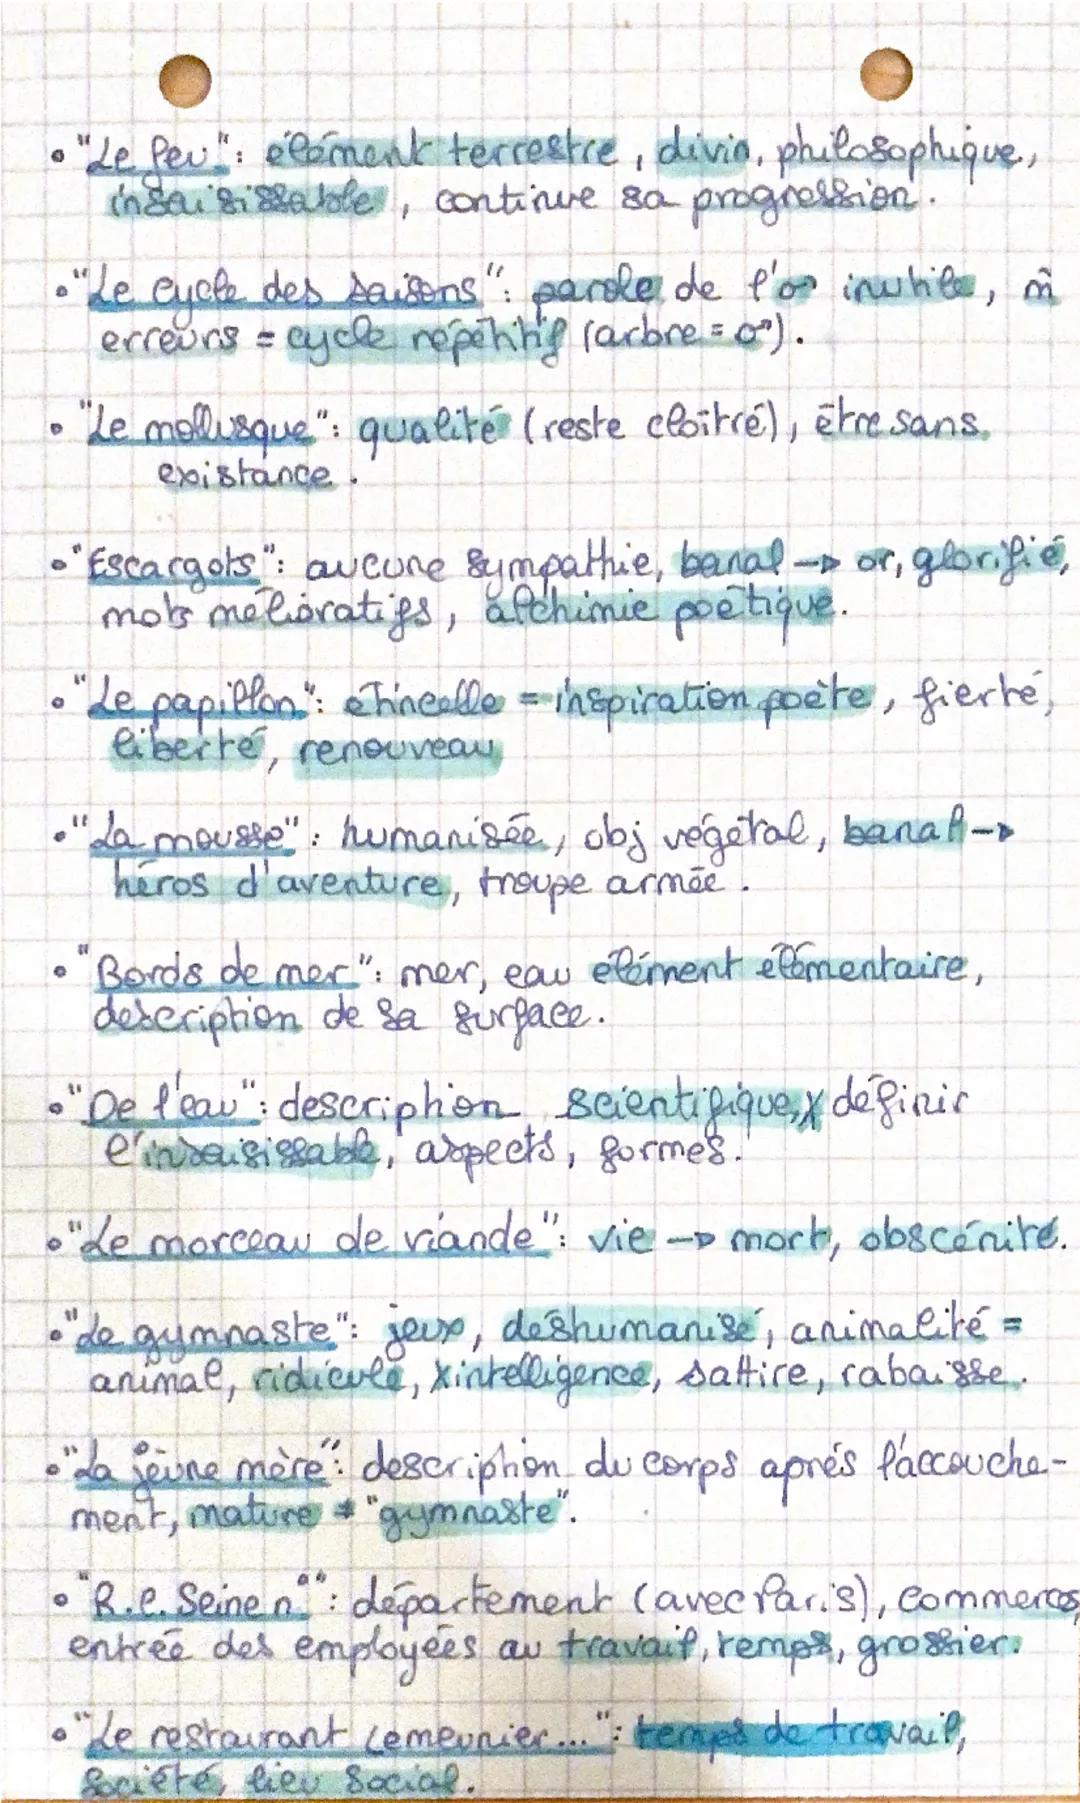 • "Le feu": élément terrestre, divin, philosophique,
insaisissable, continue sa progression.
• "Le cycle des saisons": parole de l'♂ inutile, m̂
erreurs = cycle répétitif (arbre = ♂).
• "Le mollusque": qualité (reste cloîtré), être sans
existance.
• "Escargots": aucune sympathie, banal → or, glorifié,
mots mélioratifs, alchimie poétique.
• "Le papillon": étincelle = inspiration poète, fierté,
liberté, renouveau
• "La mousse": humanisée, obj végétal, banal →
héros d'aventure, troupe armée.
• "Bords de mer": mer, eau élément élémentaire,
description de sa surface.
• "De l'eau": description scientifique, X définir
l'insaisissable, aspects, formes.
• "Le morceau de viande": vie → mort, obscénité.
• "Le gymnaste": jeux, déshumanisé, animalité =
animal, ridicule, X intelligence, sattire, rabaisse.
• "La jeune mère": description du corps après l'accouche-
ment, mature ≠ "gymnaste".
• "R.C. Seine n°": département (avec Paris), commerces,
entrée des employées au travail, temps, grossier.
• "Le restaurant Lemeunier...": temps de travail,
société, lieu social.